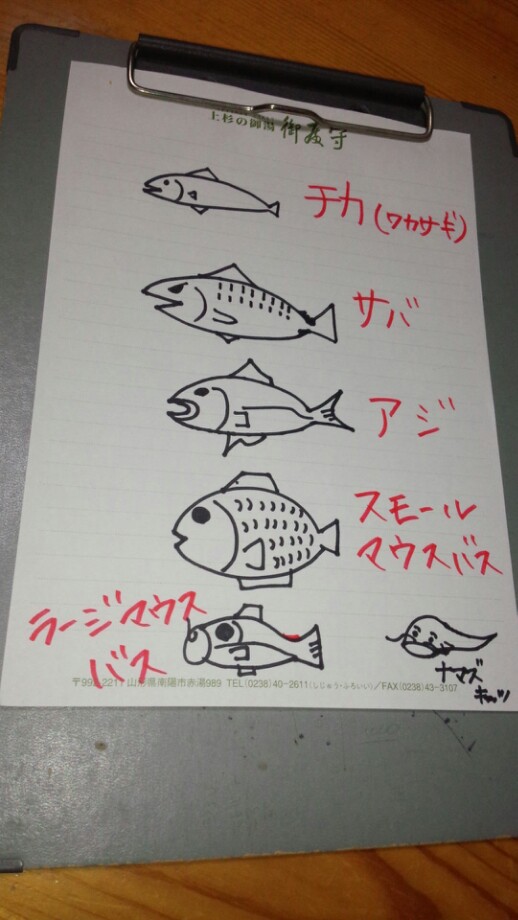 上杉の御湯 御殿守
チカ(ワカサギ)
サバ
アジ
スモール
マウスバス
ラージマウス
バス
ナマズ
〒992-2217 山形県南陽市赤湯989 TEL(0238)40-2611(しじゅう・ふろいい)／FAX(0238)43-3107